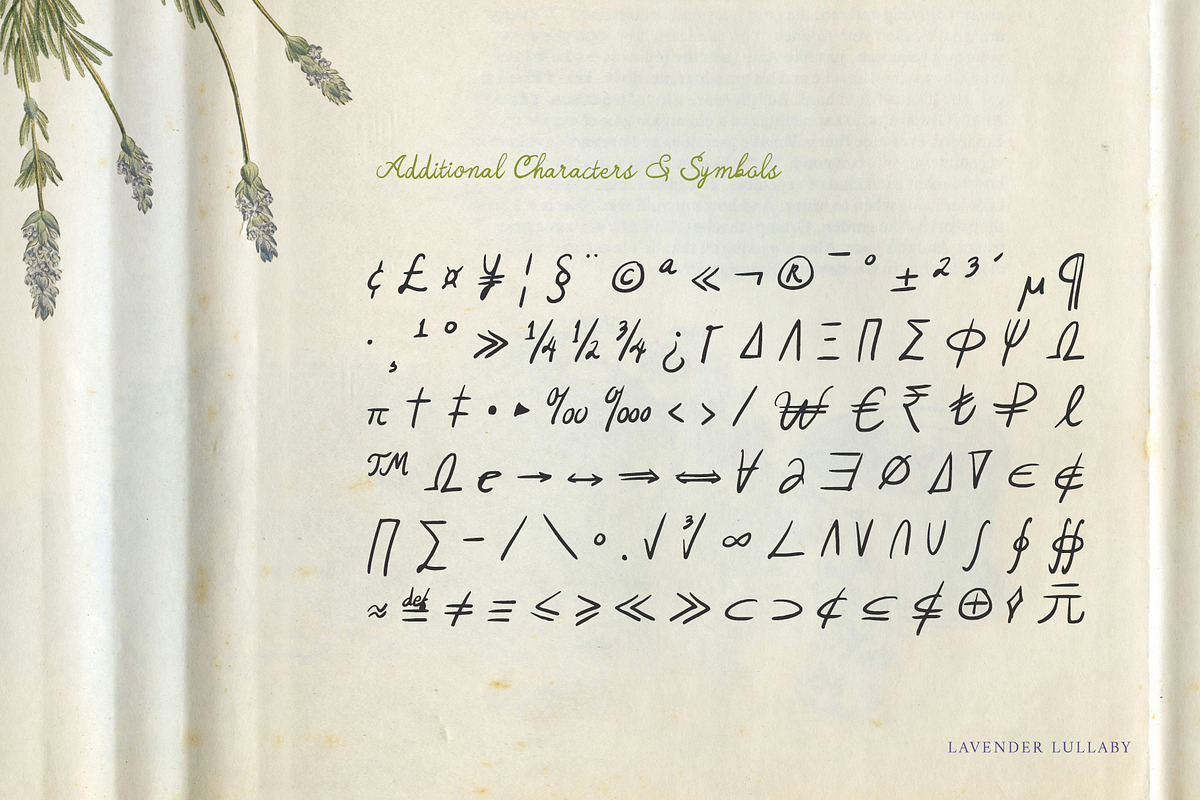 Additional Characters & Symbols
¢ £ ¤ ¥ ¦ § ¨ © ª « ¬ ® ¯ ° ± ² ³ ´ µ ¶
· ¸ ¹ º » ¼ ½ ¾ ¿ Γ Δ Λ Ξ Π Σ Φ Ψ Ω
π † ‡ • ‣ ‰ ‱ < > ⁄ ₩ € ₹ ₺ ₽ ℓ
™ Ω ℮ → ↔ ⇒ ⇔ ∀ ∂ ∃ ∅ ∆ ∇ ∈ ∉
∏ ∑ − ∕ ∖ ∘ ∙ √ ∛ ∞ ∠ ∧ ∨ ∩ ∪ ∫ ∮ ∯
≈ ≝ ≠ ≡ ≤ ≥ ≪ ≫ ⊂ ⊃ ⊄ ⊆ ⊈ ⊕ ◊ 元
LAVENDER LULLABY